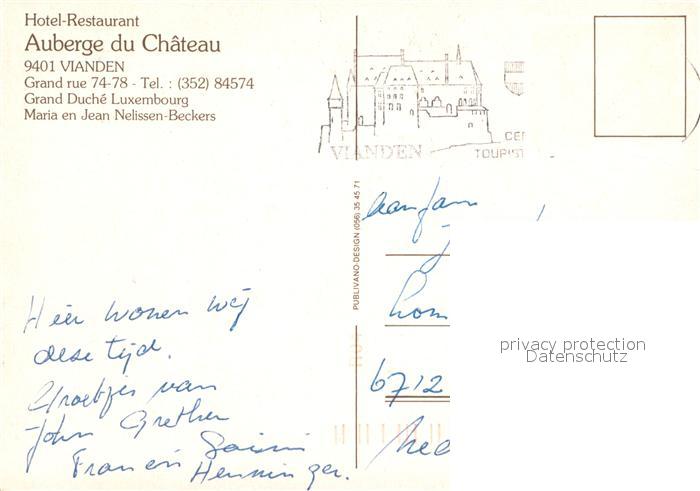 Hotel-Restaurant
Auberge du Château
9401 VIANDEN
Grand rue 74-78 - Tel. : (352) 84574
Grand Duché Luxembourg
Maria en Jean Nelissen-Beckers
VIANDEN
CEN
TOURIST
PUBLIVANO-DESIGN (056) 35 45 71
Hier wonen wij
deze tijd.
Groetjes van
John Grether
Francin
Henninger.
6712
privacy protection
Datenschutz